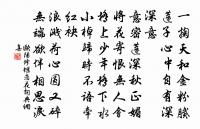 一掬天和金粉膩
蓮子心中自有深
深意
意密蓮深秋正媚
將花寄恨無人會
橋上少年橋下水
小棹歸時不語牽
紅袂
浪濺荷心圓又碎
無端欲伴相思淚
歐陽修